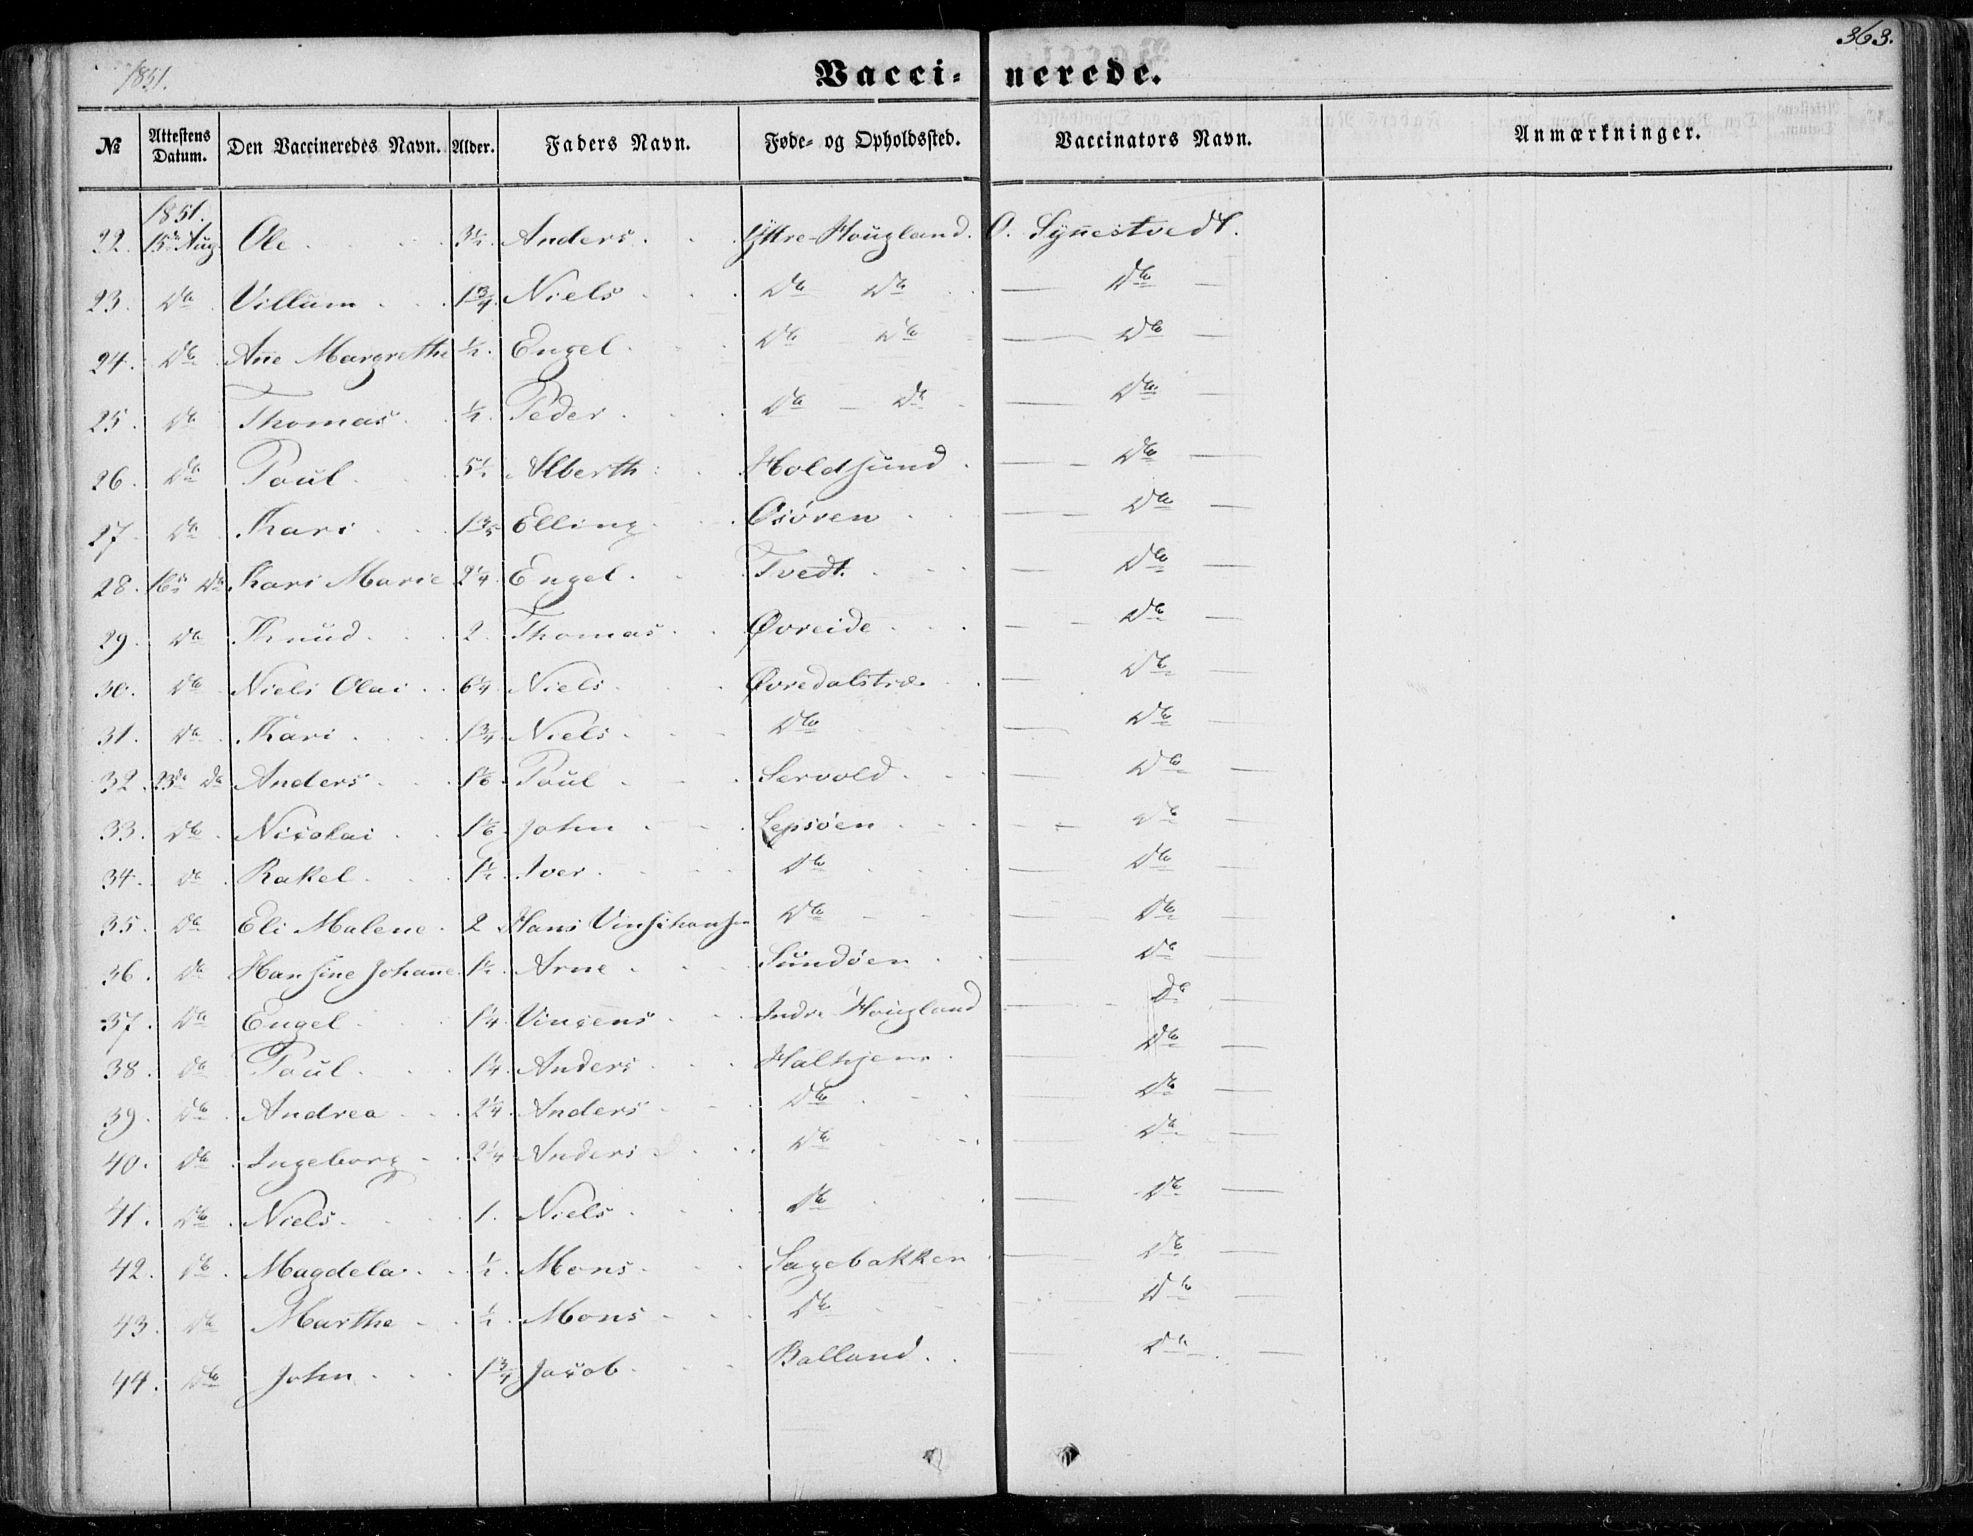 1851.
363.
Vacci- nerede.
№ Attestens Datum. Den Vaccineredes Navn. Alder. Faders Navn. Føde- og Opholdssted. Vaccinators Navn. Anmærkninger.
1851.
22. 15de Aug Ole 3½ Anders Yttre-Hougland. O. Synestvedt.
23. Do Villum 1¾ Niels Do Do Do
24. Do Ane Margrethe ½ Engel Do Do Do
25. Do Thomas ½ Peder Do Do Do
26. Do Poul 5½ Alberth Holdsund Do
27. Do Kari Elling Osøren Do
28. 16de Do Kari Marie 2¼ Engel Tvedt Do
29. Do Knud 2 Thomas Øvreide Do
30. Do Niels Olai 6¼ Niels Øvredalstræ Do
31. Do Kari 1¾ Niels Do Do
32. 23de Do Anders 1⅙ Poul Servold Do
33. Do Nicolai 1⅙ John Lepsøen Do
34. Do Rakel 1½ Iver Do Do
35. Do Eli Malene 2 Hans Do Do
36. Do Hansine Johanne 1½ Arne Sundøen Do
37. Do Engel 1¼ Vincens Indre Hougland Do
38. Do Poul 1¼ Anders Halhjem Do
39. Do Andrea 2¼ Anders Do Do
40. Do Ingeborg 2¼ Anders Do Do
41. Do Niels 1. Niels Do Do
42. Do Magdela ½ Mons Sagebakken Do
43. Do Marthe ½ Mons Do Do
44. Do John 1¾ Jacob Balland Do